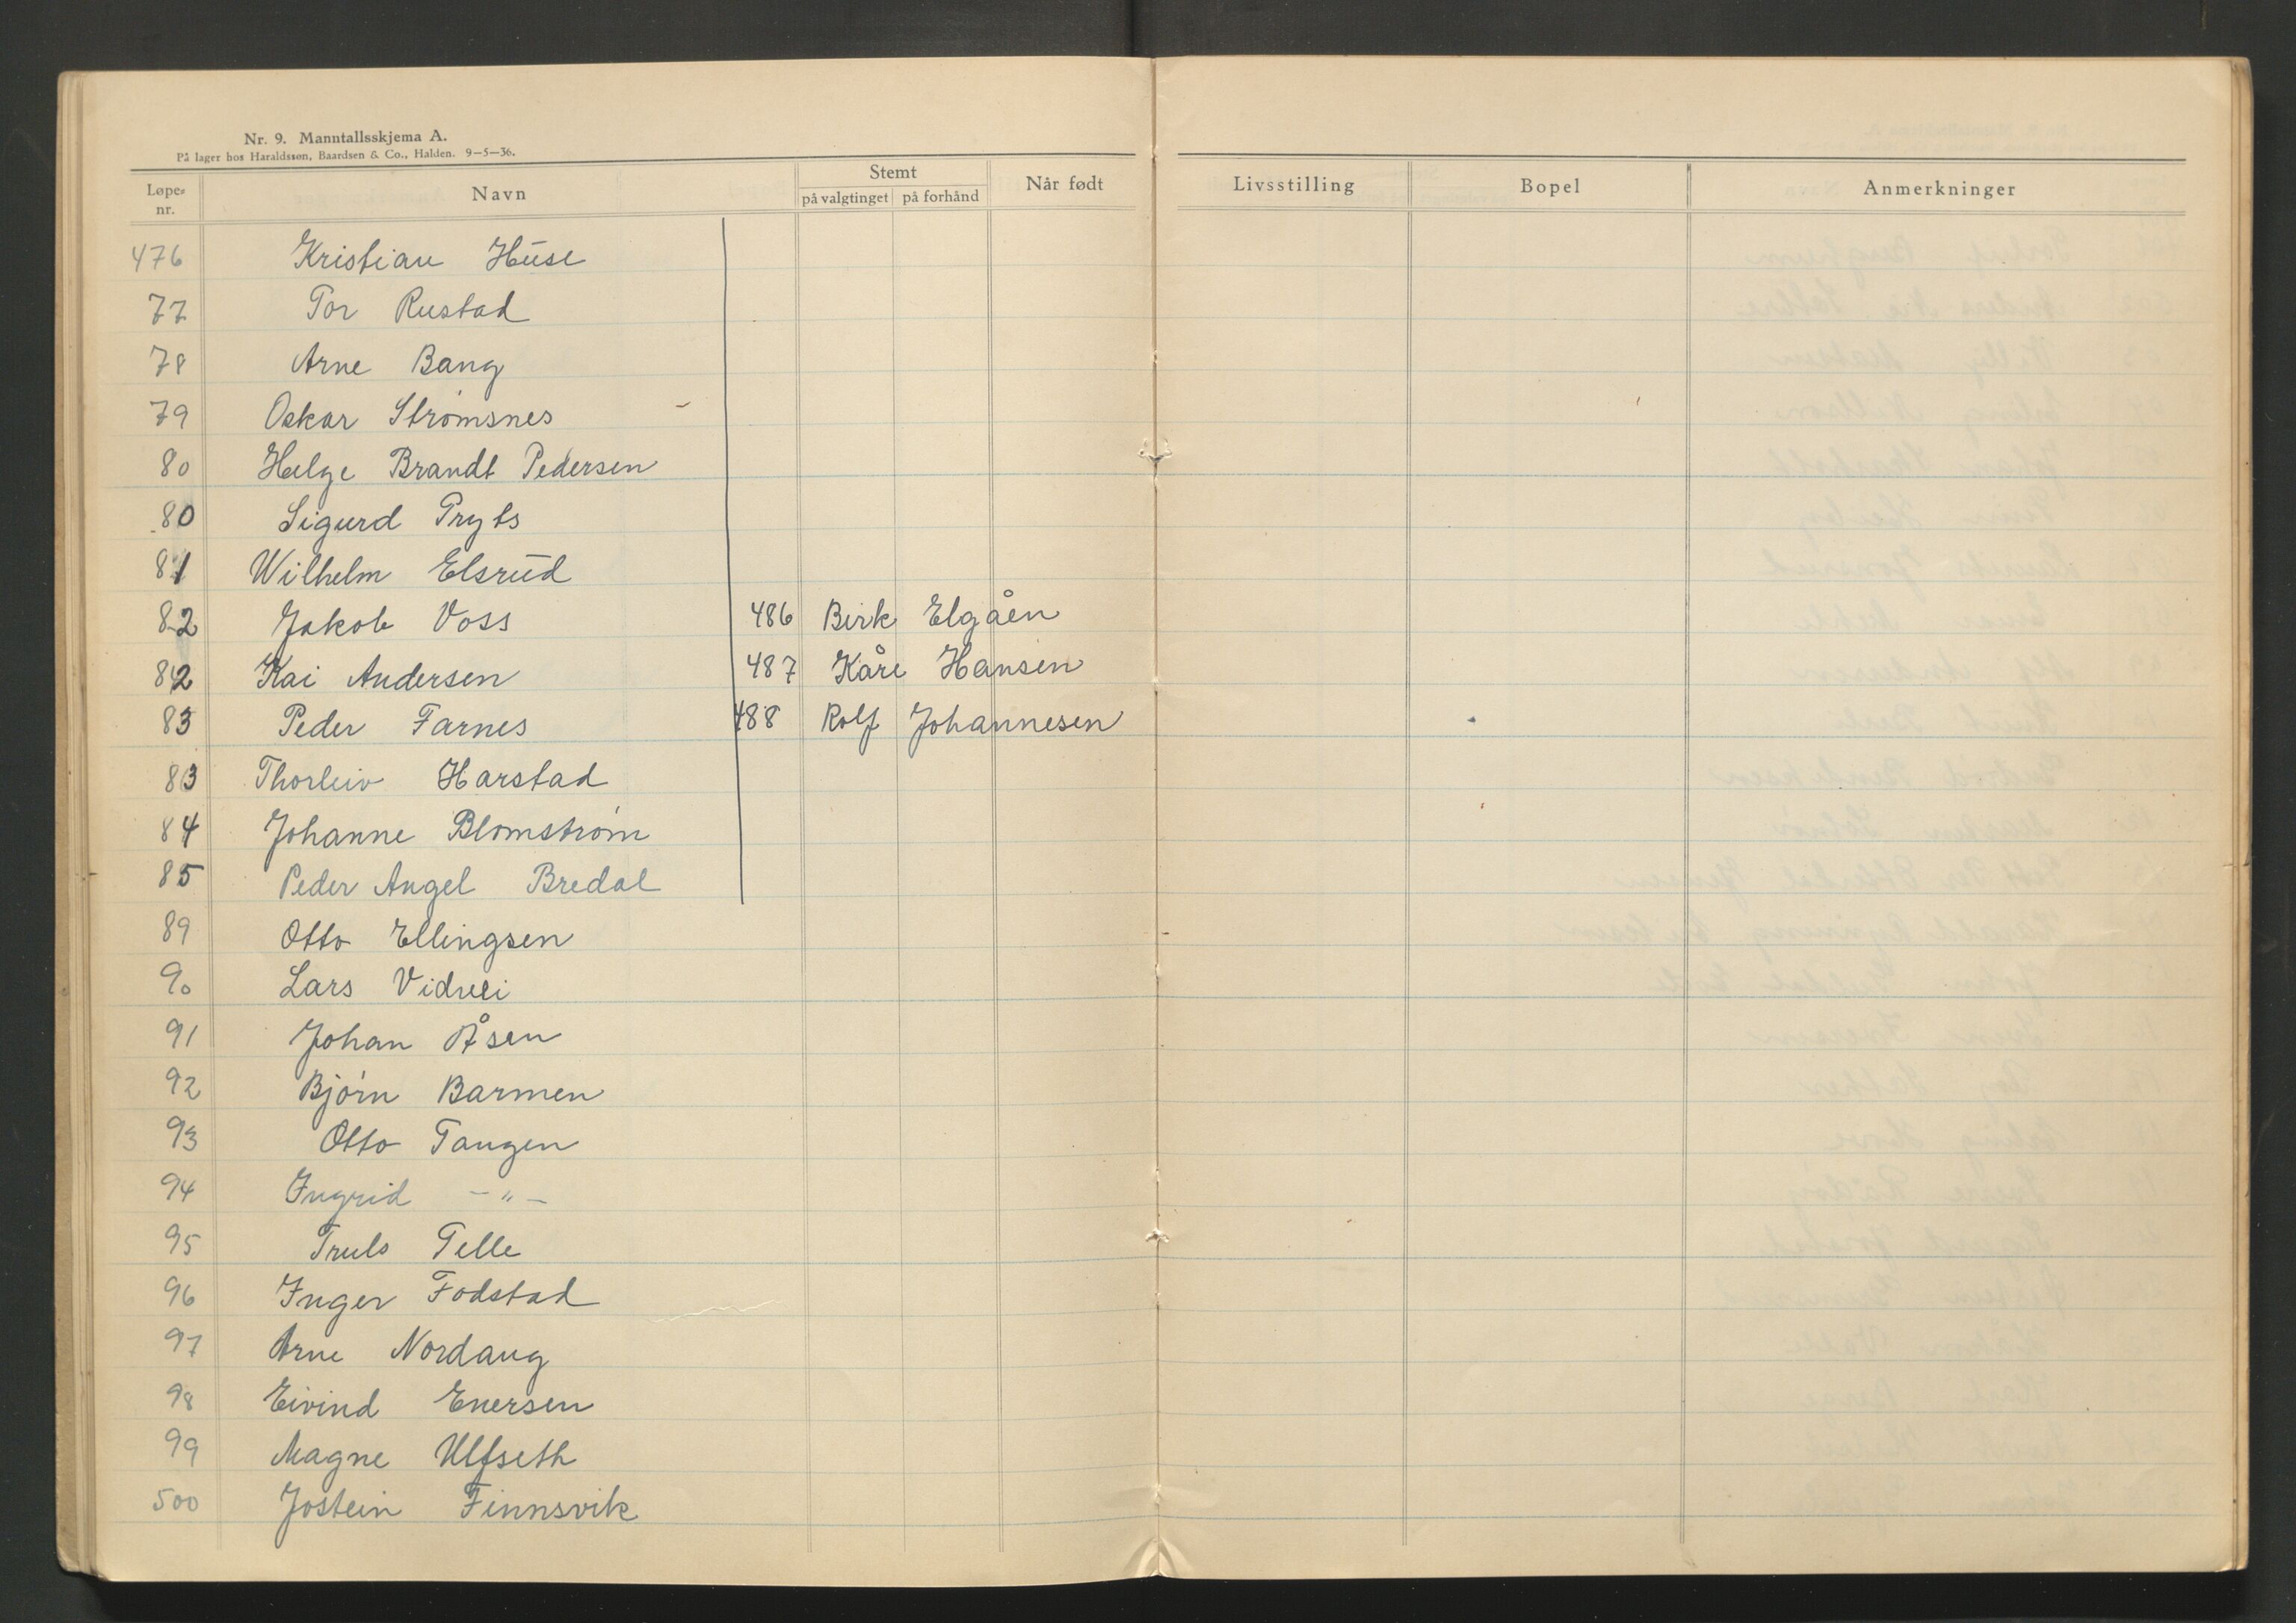 Nr. 9. Manntallsskjema A.
På lager hos Haraldssøn, Baardsen & Co., Halden. 9-5-36.
Løpe-
nr.
Navn
Stemt
på valgtinget
på forhånd
Når født
Livsstilling
Bopel
Anmerkninger
476 Kristian Huse
77 Tor Rustad
78 Arne Bang
79 Oskar Strømsnes
80 Helge Brandt Pedersen
80 Sigurd Pryts
81 Wilhelm Elsrud
82 Jakob Voss 486 Birk Elgåen
82 Kai Andersen 487 Kåre Hansen
83 Peder Farnes 488 Rolf Johannesen
83 Thorleiv Harstad
84 Johanne Blomstrøm
85 Peder Angel Bredal
89 Otto Ellingsen
90 Lars Vidvei
91 Johan Åsen
92 Bjørn Barmen
93 Otto Tangen
94 Ingrid -"-
95 Truls Telle
96 Inger Fodstad
97 Arne Nordaug
98 Eivind Enersen
99 Magne Ulfseth
500 Jostein Finnsvik